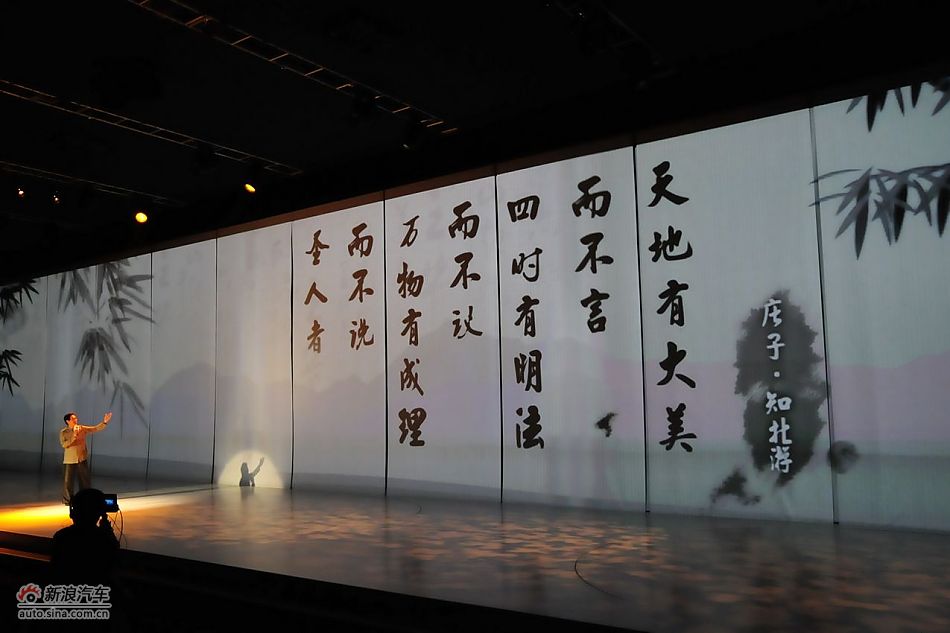 庄子·知北游
天地有大美
而不言
四时有明法
而不议
万物有成理
而不说
圣人者
新浪汽车
auto.sina.com.cn